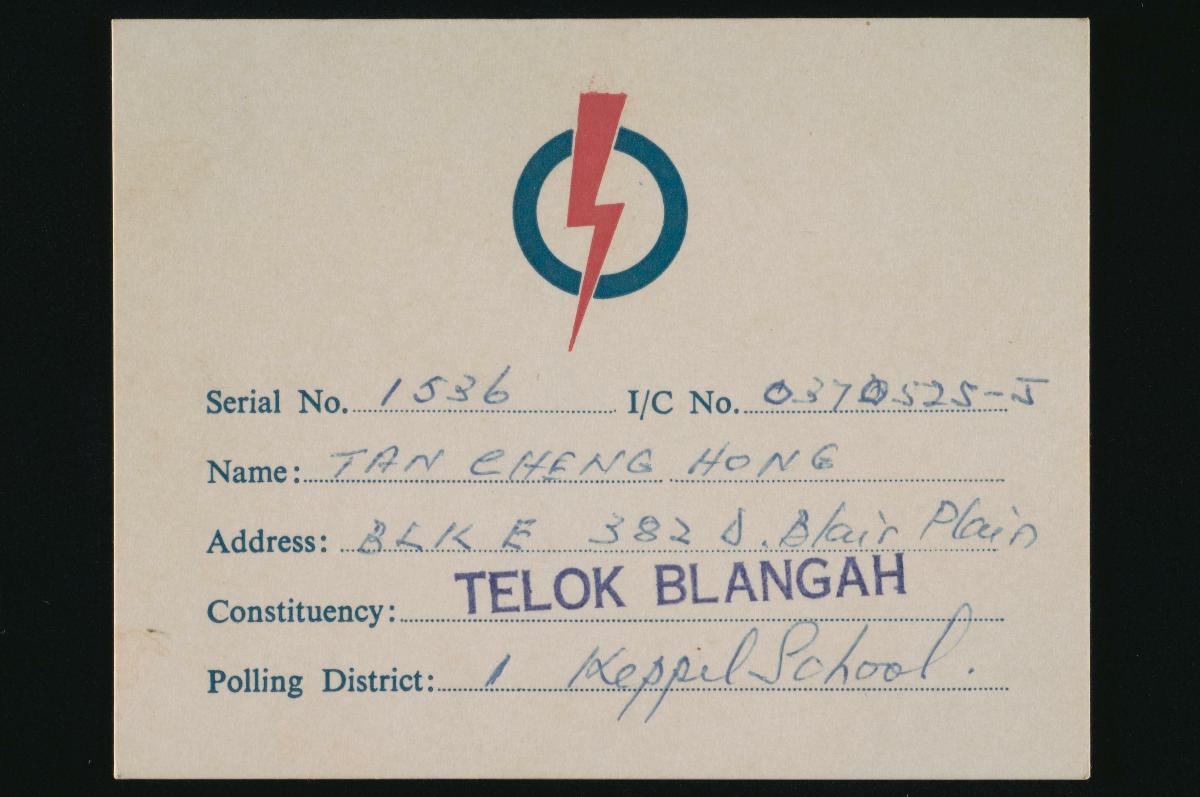 Serial No. 1536 I/C No. 0370525-J
Name: TAN CHENG HONG
Address: BLK E 382 D. Blair Plain
Constituency: TELOK BLANGAH
Polling District: 1 Keppel School.